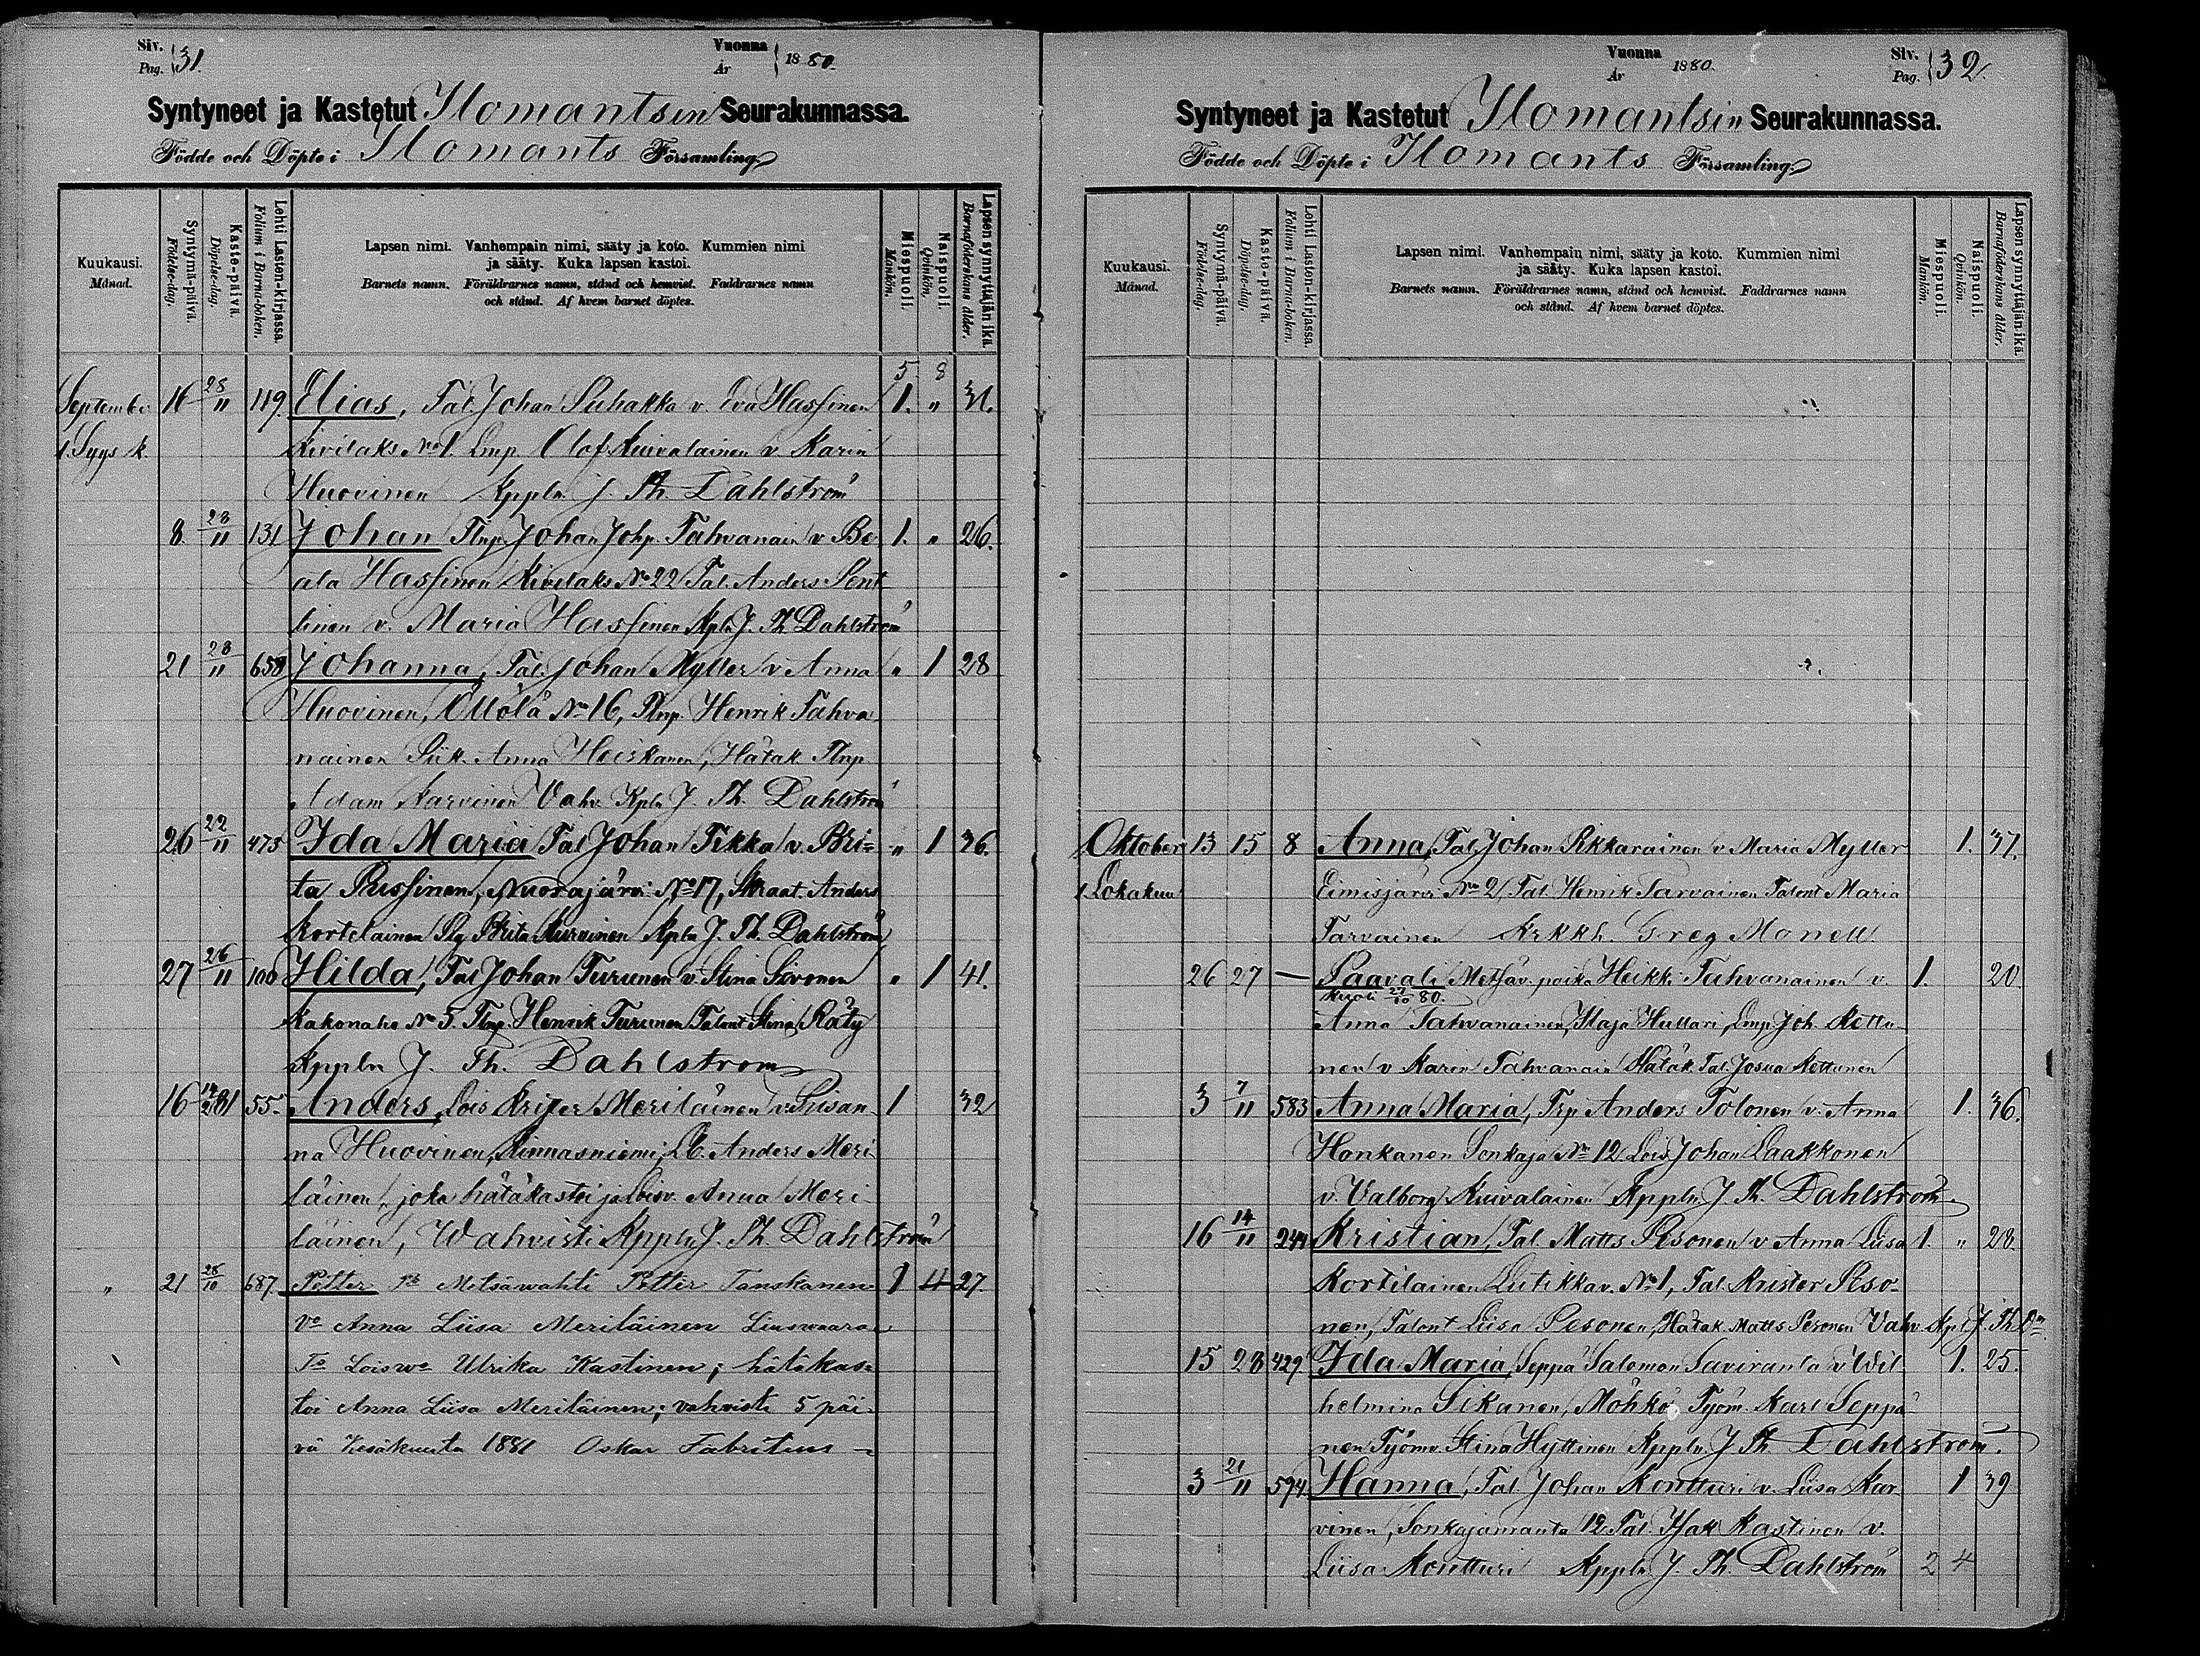 Siv. Pag. 31.
Vuonna År 1880.
Syntyneet ja Kastetut Ilomantsin Seurakunnassa.
Födde och Döpte i Ilomants Församling.
Kuukausi. Månad.
Syntymä-päivä. Födelse-dag.
Kaste-päivä. Döpelse-dag.
Lehti Lasten-kirjassa. Folium i Barna-boken.
Lapsen nimi. Vanhempain nimi, sääty ja koto. Kummien nimi
ja sääty. Kuka lapsen kastoi.
Barnets namn. Föräldrarnes namn, stånd och hemvist. Faddrarnes namn
och stånd. Af hvem barnet döptes.
Miespuoli. Mankön.
Naispuoli. Qvinkön.
Lapsen synnyttäjän ikä. Barnaföderskans ålder.
5 8
September 16 28/11 119. Elias, Tal. Johan Puhakka v. Eva Hassinen 1. " 31.
l. Syys k. Kivilaks No 1. Lmp. Olof Kuivalainen v. Karin
Huovinen Kppln J. Th. Dahlström
8. 28/11 131 Johan Itnp. Johan Johp. Tahvanain v. Be 1. " 26.
ata Hassinen Kivilaks No 22 Tal. Anders Pent
tinen v. Maria Hassinen Kpln J. Th Dahlström
21 28/11 658 Johanna, Tal. Johan Myller v. Anna " 1 28
Huovinen, Öllölä No 16, Itnp. Henrik Tahva
nainen Piik. Anna Heiskanen, Hätäk Itnp
Adam Karvinen Vahv. Kpln J. Th. Dahlström
26 22/11 475 Ida Maria Tal Johan Tikka v. Bri= " 1 36.
ta Pussinen, Nuorajärvi No 17, Skraat. Anders
Kortelainen Plg Brita Kurvinen Kpln J. Th. Dahlström
27 26/11 100 Hilda, Tal Johan Turunen v. Stina Sivonen " 1 41.
Kakonaho No 5. Itnp. Henrik Turunen Talont Stina Räty
Kppln J. Th. Dahlström
16 81 55. Anders, Lois Krister Meriläinen v. Susan- 1 32
na Huovinen, Kinnasniemi, Lb. Anders Meri
läinen, joka hätäkastoi ja Loisv. Anna Meri
läinen, Wahvisti Kppln J. Th. Dahlström
" 21 28/10 687. Petter Metsäwahti Petter Tanskanen 1 27.
Vo Anna Liisa Meriläinen Liuswaara
To Lois wo Ulrika Kastinen; hätäkas=
toi Anna Liisa Meriläinen; vahvisti 5 päi=
vä Kesäkuuta 1881 Oskar Fabritius
Vuonna År 1880.
Siv. Pag. 32.
Syntyneet ja Kastetut Ilomantsin Seurakunnassa.
Födde och Döpte i Ilomants Församling.
Kuukausi. Månad.
Syntymä-päivä. Födelse-dag.
Kaste-päivä. Döpelse-dag.
Lehti Lasten-kirjassa. Folium i Barna-boken.
Lapsen nimi. Vanhempain nimi, sääty ja koto. Kummien nimi
ja sääty. Kuka lapsen kastoi.
Barnets namn. Föräldrarnes namn, stånd och hemvist. Faddrarnes namn
och stånd. Af hvem barnet döptes.
Miespuoli. Mankön.
Naispuoli. Qvinkön.
Lapsen synnyttäjän ikä. Barnaföderskans ålder.
Oktober 13 15 8 Anna, Tal. Johan Pikkarainen v Maria Myller 1. 37.
l. Lokakuu Eimisjärvi No 2, Tal. Henrik Tarvainen Talont Maria
Tarvainen Krkkh. Greg Monell.
26 27 — Paavali Metsäv. poika Heikki Tahvanainen v. 1. 20.
kuoli 27/10 80.
Anna Tahvanainen, Ilaja Huttari, Lmp. Joh. Kettu
nen v Karin Tahvanain Hätäk Tal. Josua Kettunen
3 7/11 583 Anna Maria, Trp Anders Tolonen v. Anna 1. 36.
Honkanen Sonkaja No 12 Lois Johan Laakkonen
v. Valborg Kuivalainen Kppln J. Th. Dahlström.
16 14/11 244 Kristian, Tal. Matts Pesonen v Anna Liisa 1. " 28.
Kortelainen Lutikkav. No 1, Tal. Krister Peso-
nen, Talont Liisa Pesonen, Hätäk. Matts Pesonen Vahv. Kpl. J. Th. Dm
15 28 429 Ida Maria, Seppä Salomon Saviranta v. Wil 1. 25.
helmina Sikanen, Möhkö Työm. Karl Seppä
nen Työmv. Stina Hyttinen Kppln. J Th. Dahlström.
3 21/11 594. Hanna, Tal. Johan Kontturi v. Liisa Kar 1 39
vinen, Sonkajanranta 12 Tal. Isak Kastinen v.
Liisa Kontturi Kppln J. Th. Dahlström 2 4